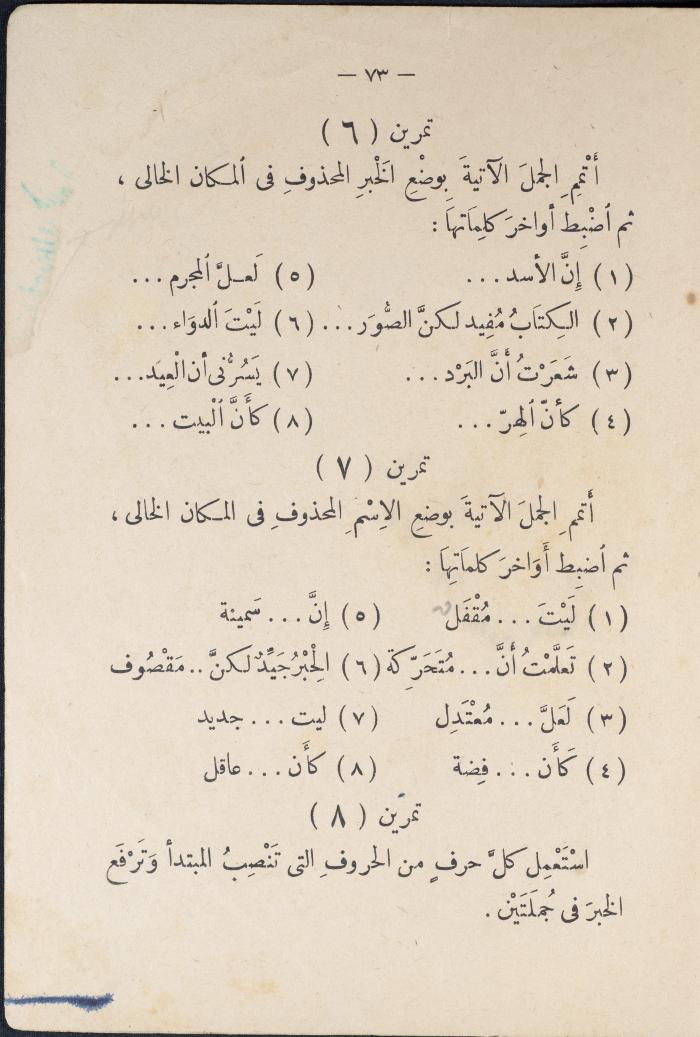 — ٧٣ —
تمرين ( ٦ )
أَتْمِمِ الجملَ الآتيةَ بِوضْعِ الخَبرِ المحذوفِ فى ٱلمكان الخالى ،
ثم ٱضْبِط أواخرَ كلِمَاتها :
( ١ ) إِنَّ الأسد ... ( ٥ ) لَعـلَّ ٱلمجرم ...
( ٢ ) الـكِتَابُ مُفِيد لـكنَّ الصُّوَر ... ( ٦ ) لَيْتَ ٱلدوَاء ...
( ٣ ) شَعَرْتُ أَنَّ البَرْد ... ( ٧ ) يَسُرُّنى أن الْعِيد ...
( ٤ ) كأنّ ٱلهِرّ ... ( ٨ ) كَأَنَّ ٱلْبيت ...
تمرين ( ٧ )
أَتمم ِ الجملَ الآتيةَ بوضعِ الاِسْمِ المحذوفِ فى المـكان الخالى ،
ثم ٱضبِط أَوَاخرَ كلمَاتِهَا :
( ١ ) لَيْتَ ... مُقْفَل ( ٥ ) إِنَّ ... سَمينة
( ٢ ) تَعلَّمْتُ أَنَّ ... مُتَحَرِّكة ( ٦ ) الْحِبْرُ جَيِّدٌ لـكنَّ .. مَقْصُوف
( ٣ ) لَعَلَّ ... مُعْتَدِل ( ٧ ) ليت ... جديد
( ٤ ) كَأَن ... فِضة ( ٨ ) كأَن ... عاقل
تمرين ( ٨ )
اسْتَعْمِل كلَّ حرفٍ من الحروفِ التى تَنْصِبُ المبتدأ وَتَرْفَع
الخبرَ فى جُملَتَيْن .